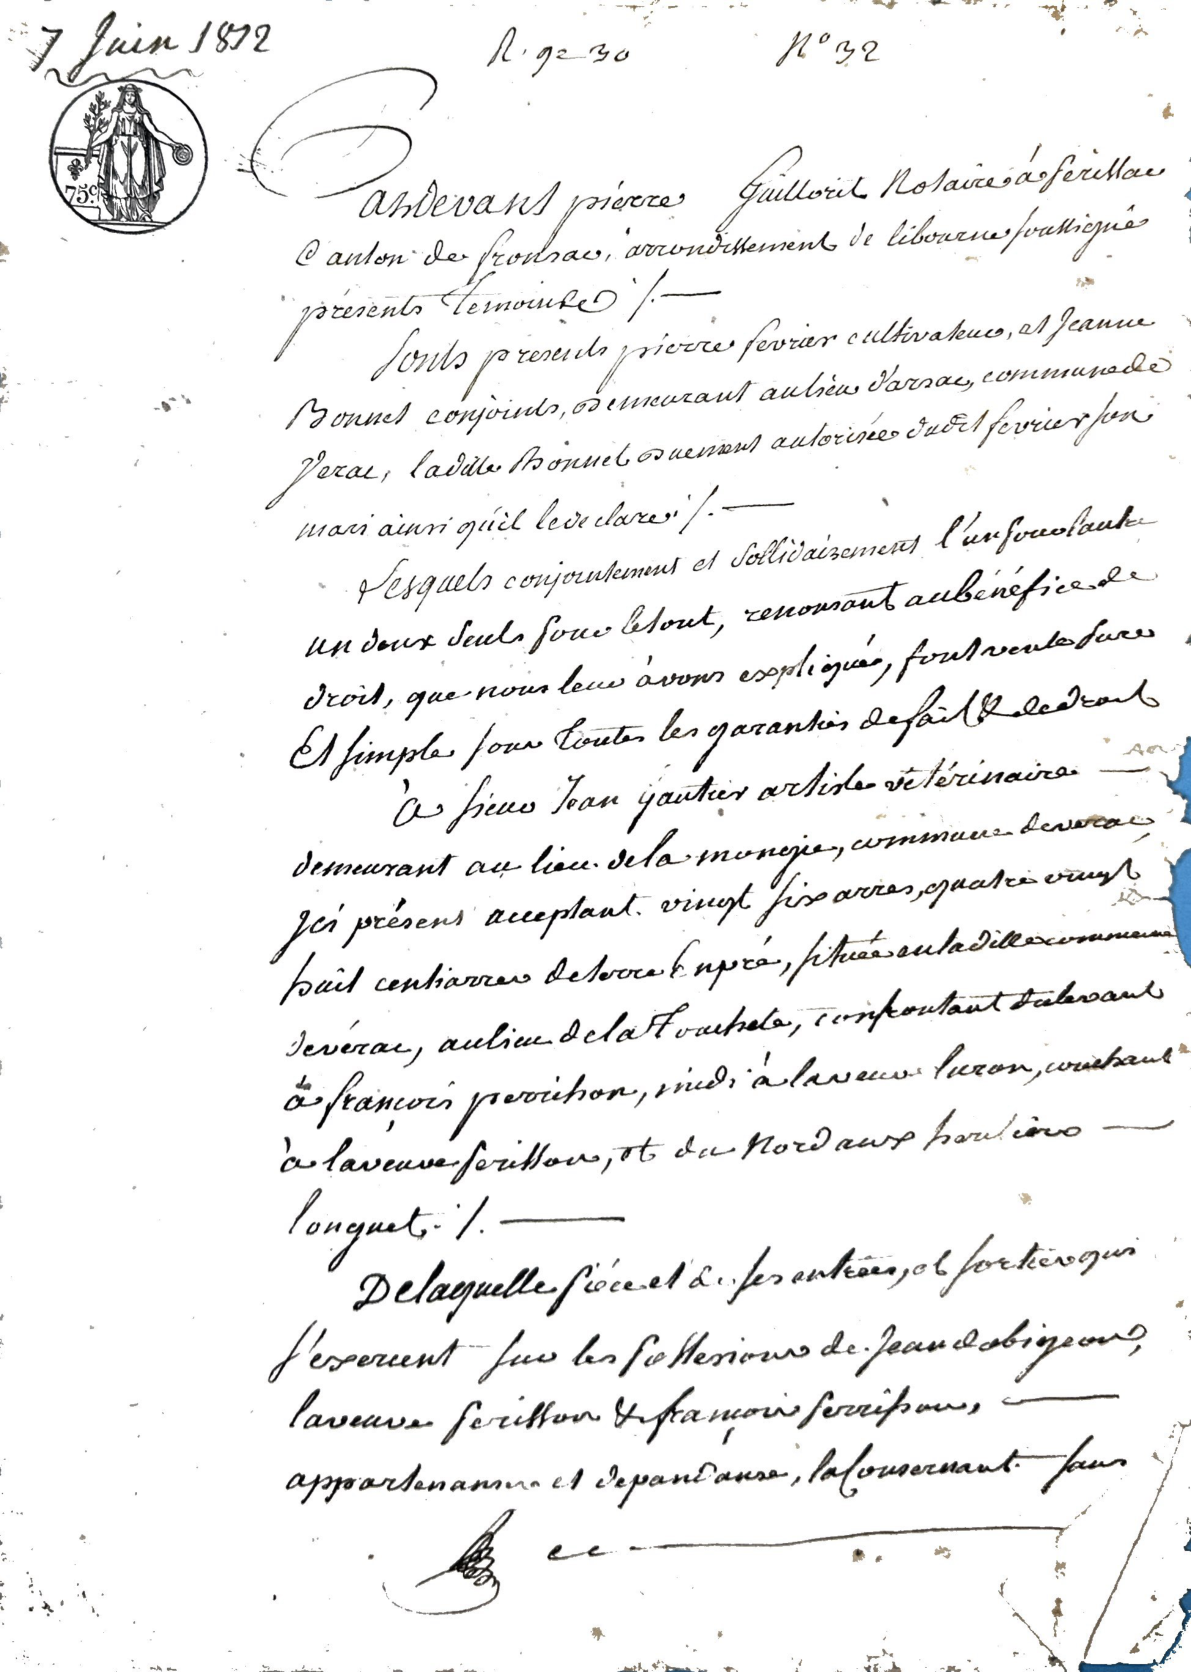 7 Juin 1812
R. 92 30 N° 32
75 c.
Pardevant pierre Guillorit Notaire à périssac
Canton de fronsac, arrondissement de libourne soussigné
présents temoins /. —
Sonts presents pierre fevrier cultivateur, et Jeanne
Bonnet conjoints, demeurant au lieu d'arsac, commune de
Verac, ladite Bonnet duement autorisée dudit fevrier son
mari ainsi qu'il le declare /. —
Lesquels conjointement et sollidairement l'un pour l'autre
un deux seuls pour le tout, renonsant au bénéfice de
droit, que nous leur avons expliqué, font vente pure
Et simple sour toutes les garanties de fait & de droit
à sieur Jean gautier artiste vétérinaire —
demeurant au lieu de la mongie, commune de verac,
Jci présent acceptant. vingt six arres, quatre vingt
huit centiarres de terre En pré, située en la ditte commune
de vérac, au lieu de la Touchete, confrontant du levant
à françois perrichon, midi à la veuve luron, couchant
à la veuve perisson, et du Nord aux heritiers —
longuet. /. —
De laquelle piéce et de ses entrées, et sorties qui
s'exercent sur les possessions de Jean dabigeon,
la veuve perisson & françois perrichon, —
appartenanse et dependanse, la Consernant. sans